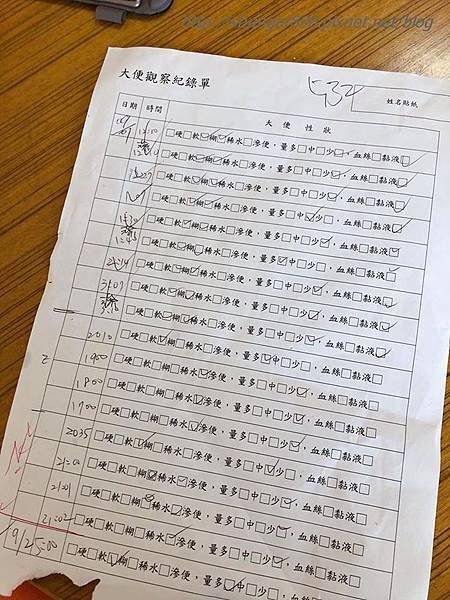 大便觀察紀錄單
534
姓名貼紙
日期 時間 大便性狀
12:00 □硬□軟☑糊☑稀水□滲便，量多□中□少☑，血絲□黏液☑
□硬□軟☑糊☑稀水□滲便，量多□中□少☑，血絲□黏液☑
□硬□軟☑糊☑稀水□滲便，量多□中□少☑，血絲□黏液☑
□硬□軟☑糊☑稀水□滲便，量多□中□少☑，血絲□黏液☑
□硬□軟☑糊☑稀水□滲便，量多□中☑少□，血絲□黏液☑
□硬□軟☑糊☑稀水□滲便，量多□中□少☑，血絲□黏液☑
□硬□軟☑糊☑稀水□滲便，量多☑中□少□，血絲□黏液☑
□硬□軟☑糊☑稀水□滲便，量多□中□少☑，血絲□黏液☑
□硬□軟☑糊☑稀水□滲便，量多□中□少☑，血絲□黏液☑
2010 □硬□軟☑糊□稀水□滲便，量多☑中□少□，血絲□黏液□
1900 □硬□軟□糊□稀水☑滲便，量多□中□少☑，血絲□黏液□
1800 □硬□軟□糊□稀水☑滲便，量多□中□少☑，血絲□黏液□
1700 □硬□軟□糊□稀水☑滲便，量多□中□少☑，血絲□黏液□
2035 □硬□軟☑糊□稀水□滲便，量多□中☑少□，血絲□黏液□
21:00 □硬□軟□糊☑稀水☑滲便，量多□中□少☑，血絲□黏液□
21:01 □硬□軟□糊☑稀水☑滲便，量多□中□少☑，血絲□黏液□
21:02 □硬□軟□糊□稀水☑滲便，量多□中□少☑，血絲□黏液□
□硬□軟☑糊□稀水□滲便，量多☑中□少□，血絲□黏液□